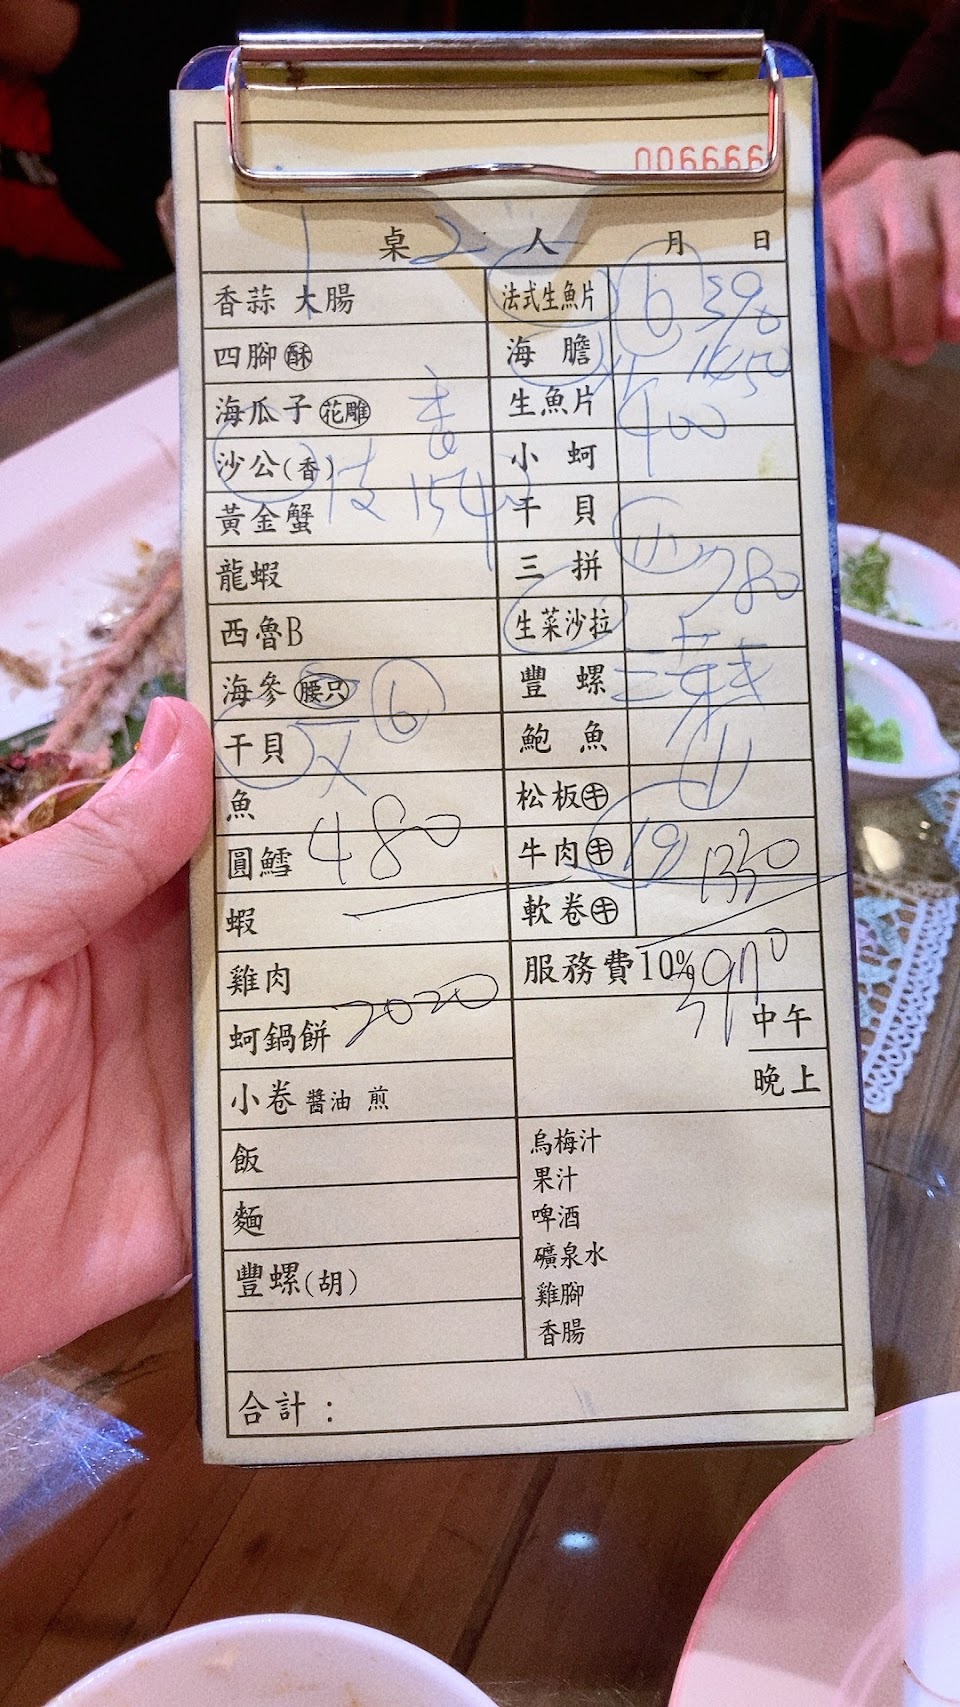 006666
1 桌 2 人 月 日
香蒜 大腸
四腳 酥
海瓜子 花雕
沙公(香)
黃金蟹
龍蝦
西魯B
海參 腰只 6
干貝
魚
圓鱈 480
蝦
雞肉
蚵鍋餅 2020
小卷 醬油 煎
飯
麵
豐螺(胡)
法式生魚片 6 390
海膽
生魚片 400
小蚵
干貝
三拼 780
生菜沙拉
豐螺
鮑魚
松板牛
牛肉牛 19 1330
軟卷牛
服務費10% 3970
中午
晚上
烏梅汁
果汁
啤酒
礦泉水
雞腳
香腸
合計：